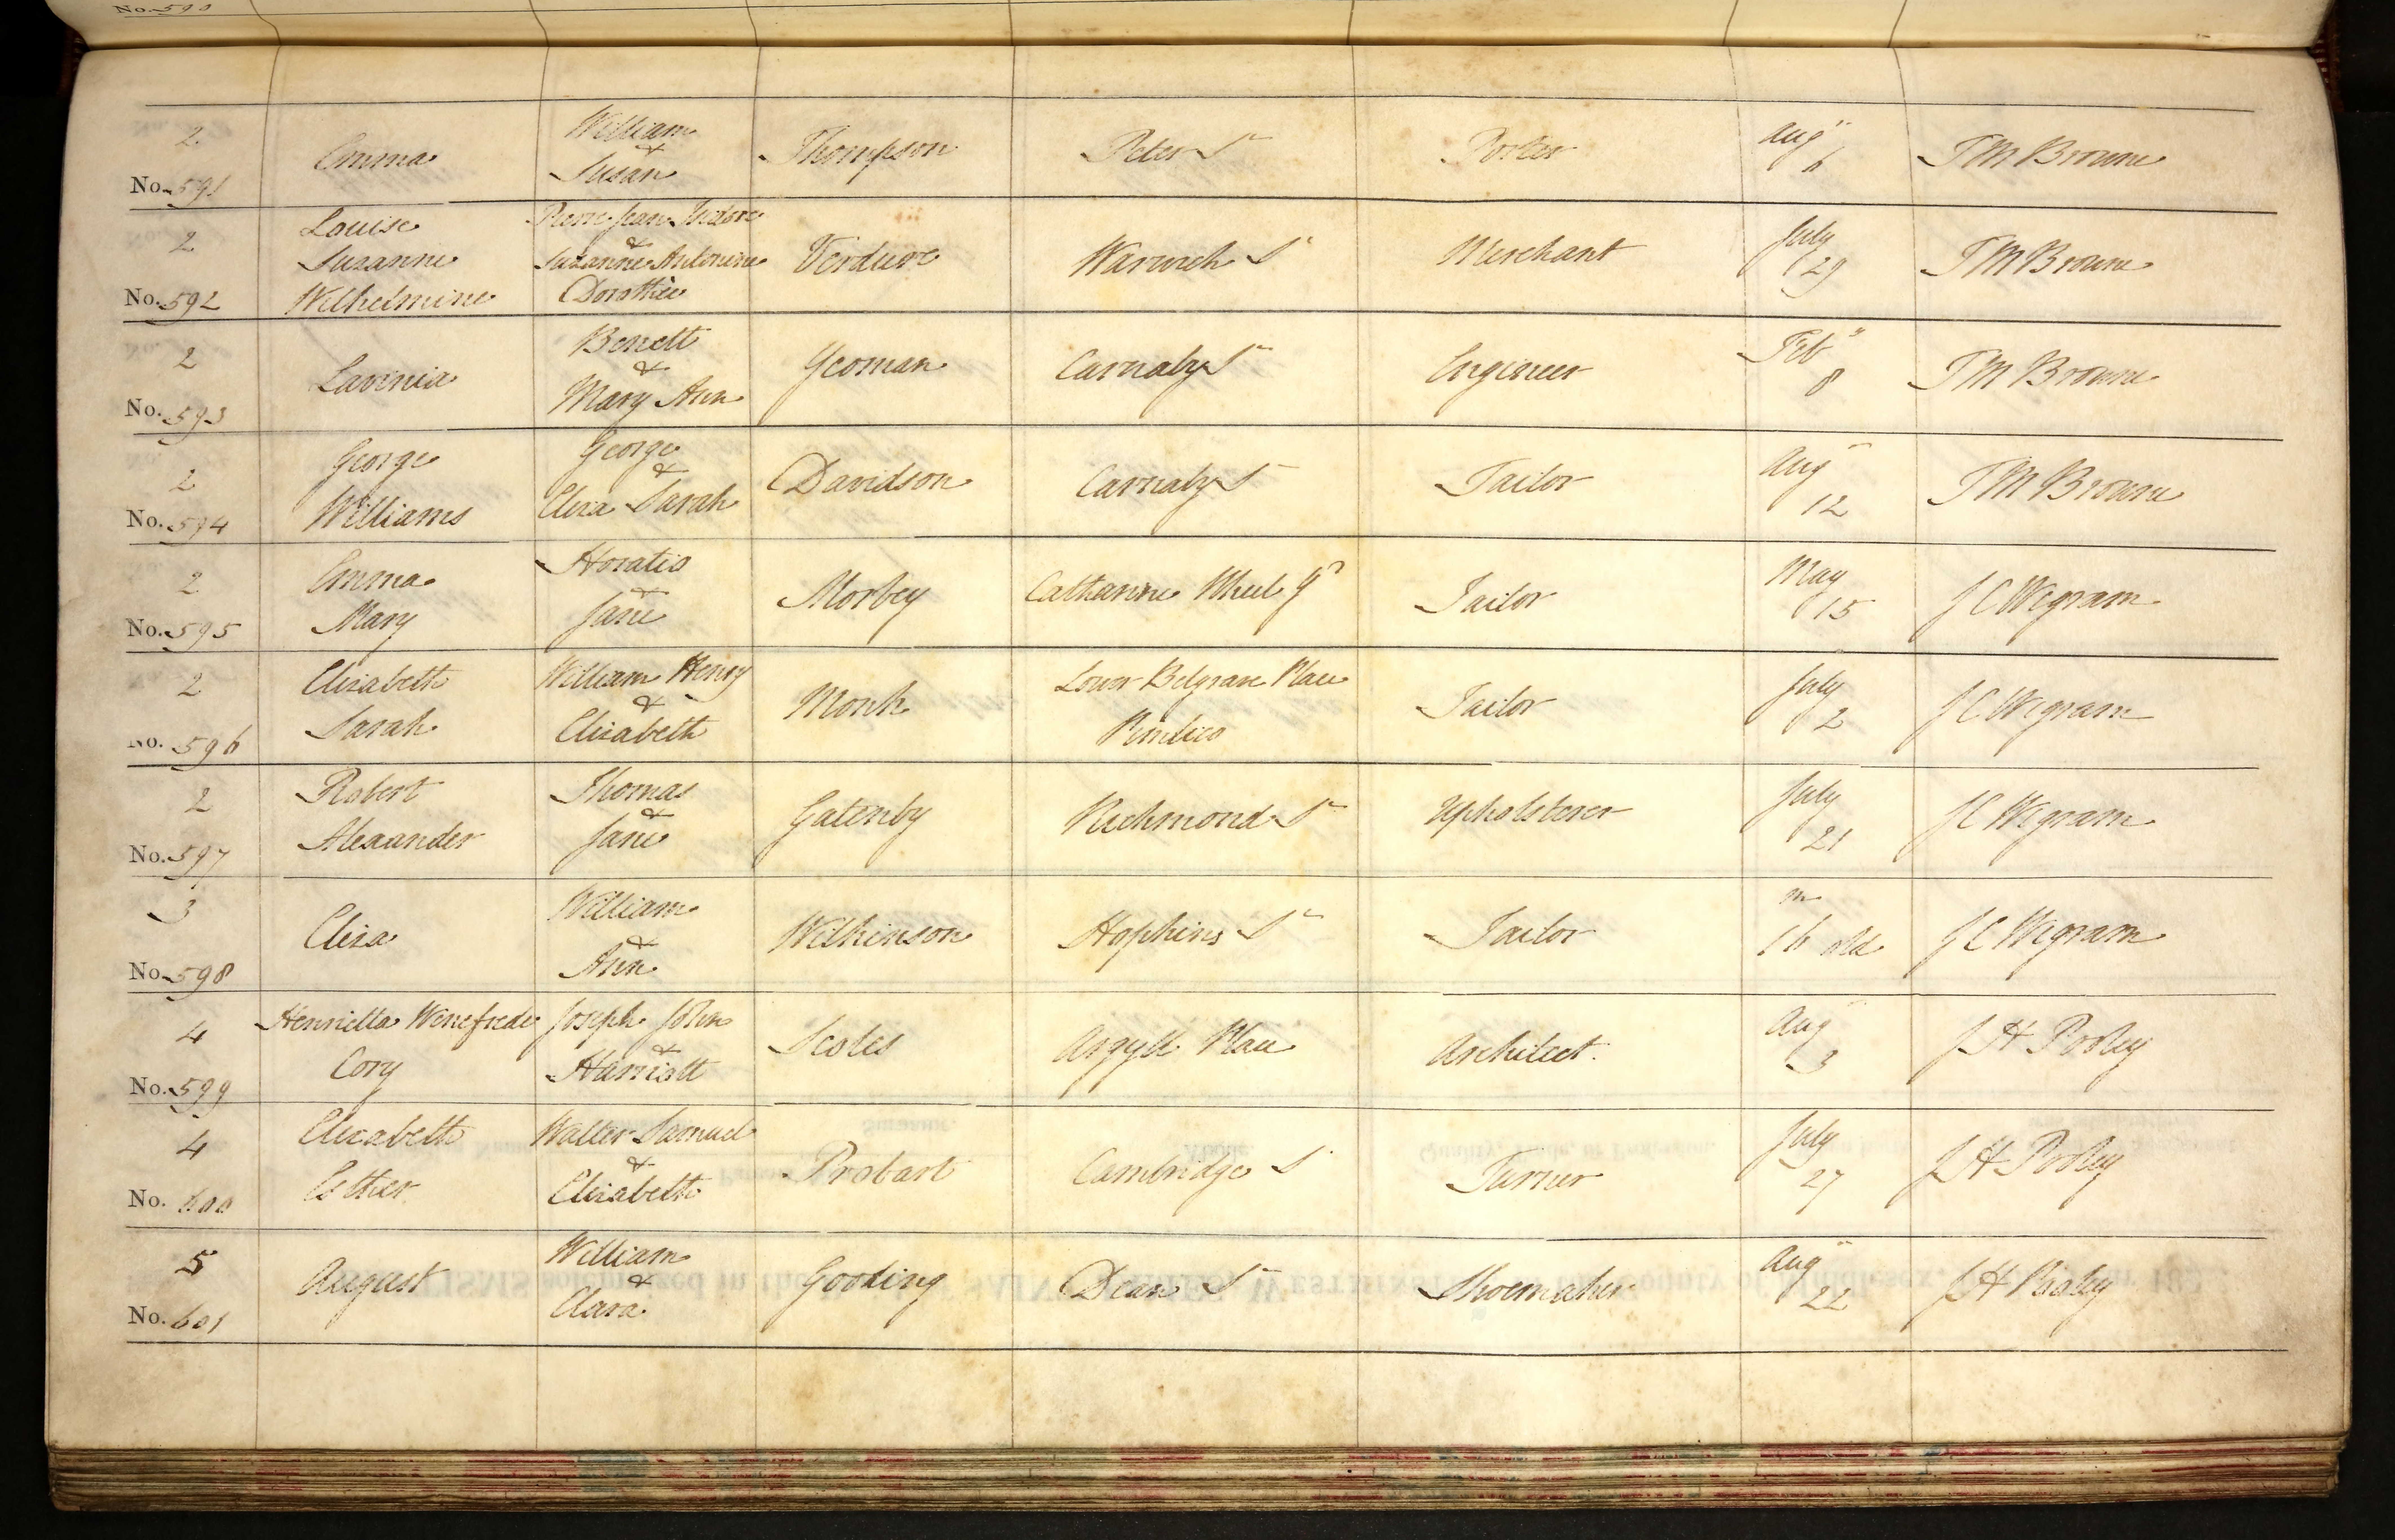 No. 590
2 Emma William & Susan Thompson Peter St Porter Augt 6 T M Browne
No. 591
2 Louise Suzanne Wilhelmine Pierre Jean Isidore & Suzanne Antonine Dorothée Verdure Warwick St Merchant July 29 T M Browne
No. 592
2 Lavinia Benett & Mary Ann Yeoman Carnaby St Engineer Feby 8 T M Browne
No. 593
2 George Williams George & Eliza Sarah Davidson Carnaby St Tailor Augt 12 T M Browne
No. 594
2 Emma Mary Horatio & Jane Morbey Catharine Wheel Yd Tailor May 15 J C Wigram
No. 595
2 Elizabeth Sarah William Henry & Elizabeth Monk Lower Belgrave Place Pimlico Tailor July 2 J C Wigram
No. 596
2 Robert Alexander Thomas & Jane Gatenby Richmond St Upholsterer July 21 J C Wigram
No. 597
3 Eliza William & Ann Wilkinson Hopkins St Tailor m 16 old J C Wigram
No. 598
4 Henrietta Winefrede Cory Joseph John & Harriott Scoles Argyll Place Architect Augt 3 J H Pooley
No. 599
4 Elizabeth Esther Walter Samuel & Elizabeth Probart Cambridge St Turner July 27 J H Pooley
No. 600
5 August William & Clara Gooding Dean St Shoemaker Augt 22 J H Pooley
No. 601